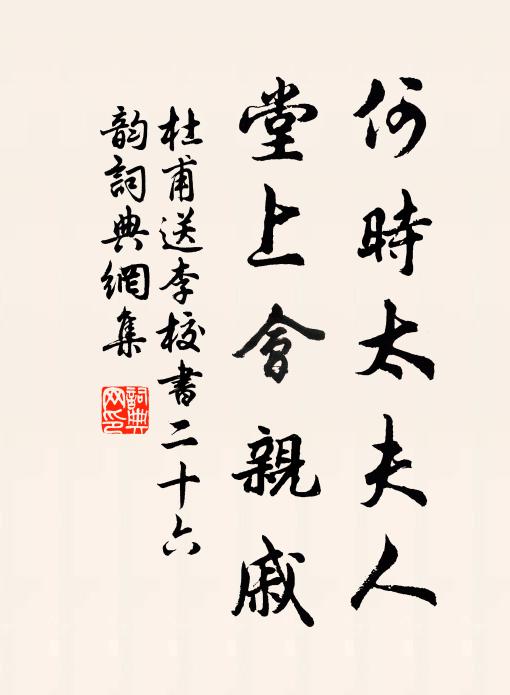 何時太夫人
堂上會親戚
杜甫送李校書二十六
韻詞典網集
詞典
网印